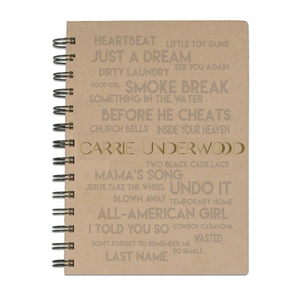 HEARTBEAT
LITTLE TOY GUNS
JUST A DREAM
SEE YOU AGAIN
DIRTY LAUNDRY
GOOD GIRL
SMOKE BREAK
SOMETHING IN THE WATER
BEFORE HE CHEATS
CHURCH BELLS INSIDE YOUR HEAVEN
CARRIE UNDERWOOD
TWO BLACK CADILLACS
MAMA'S SONG
JESUS TAKE THE WHEEL UNDO IT
BLOWN AWAY TEMPORARY HOME
ALL-AMERICAN GIRL
I TOLD YOU SO COWBOY CASANOVA
WASTED
DON'T FORGET TO REMEMBER ME
SO SMALL
LAST NAME